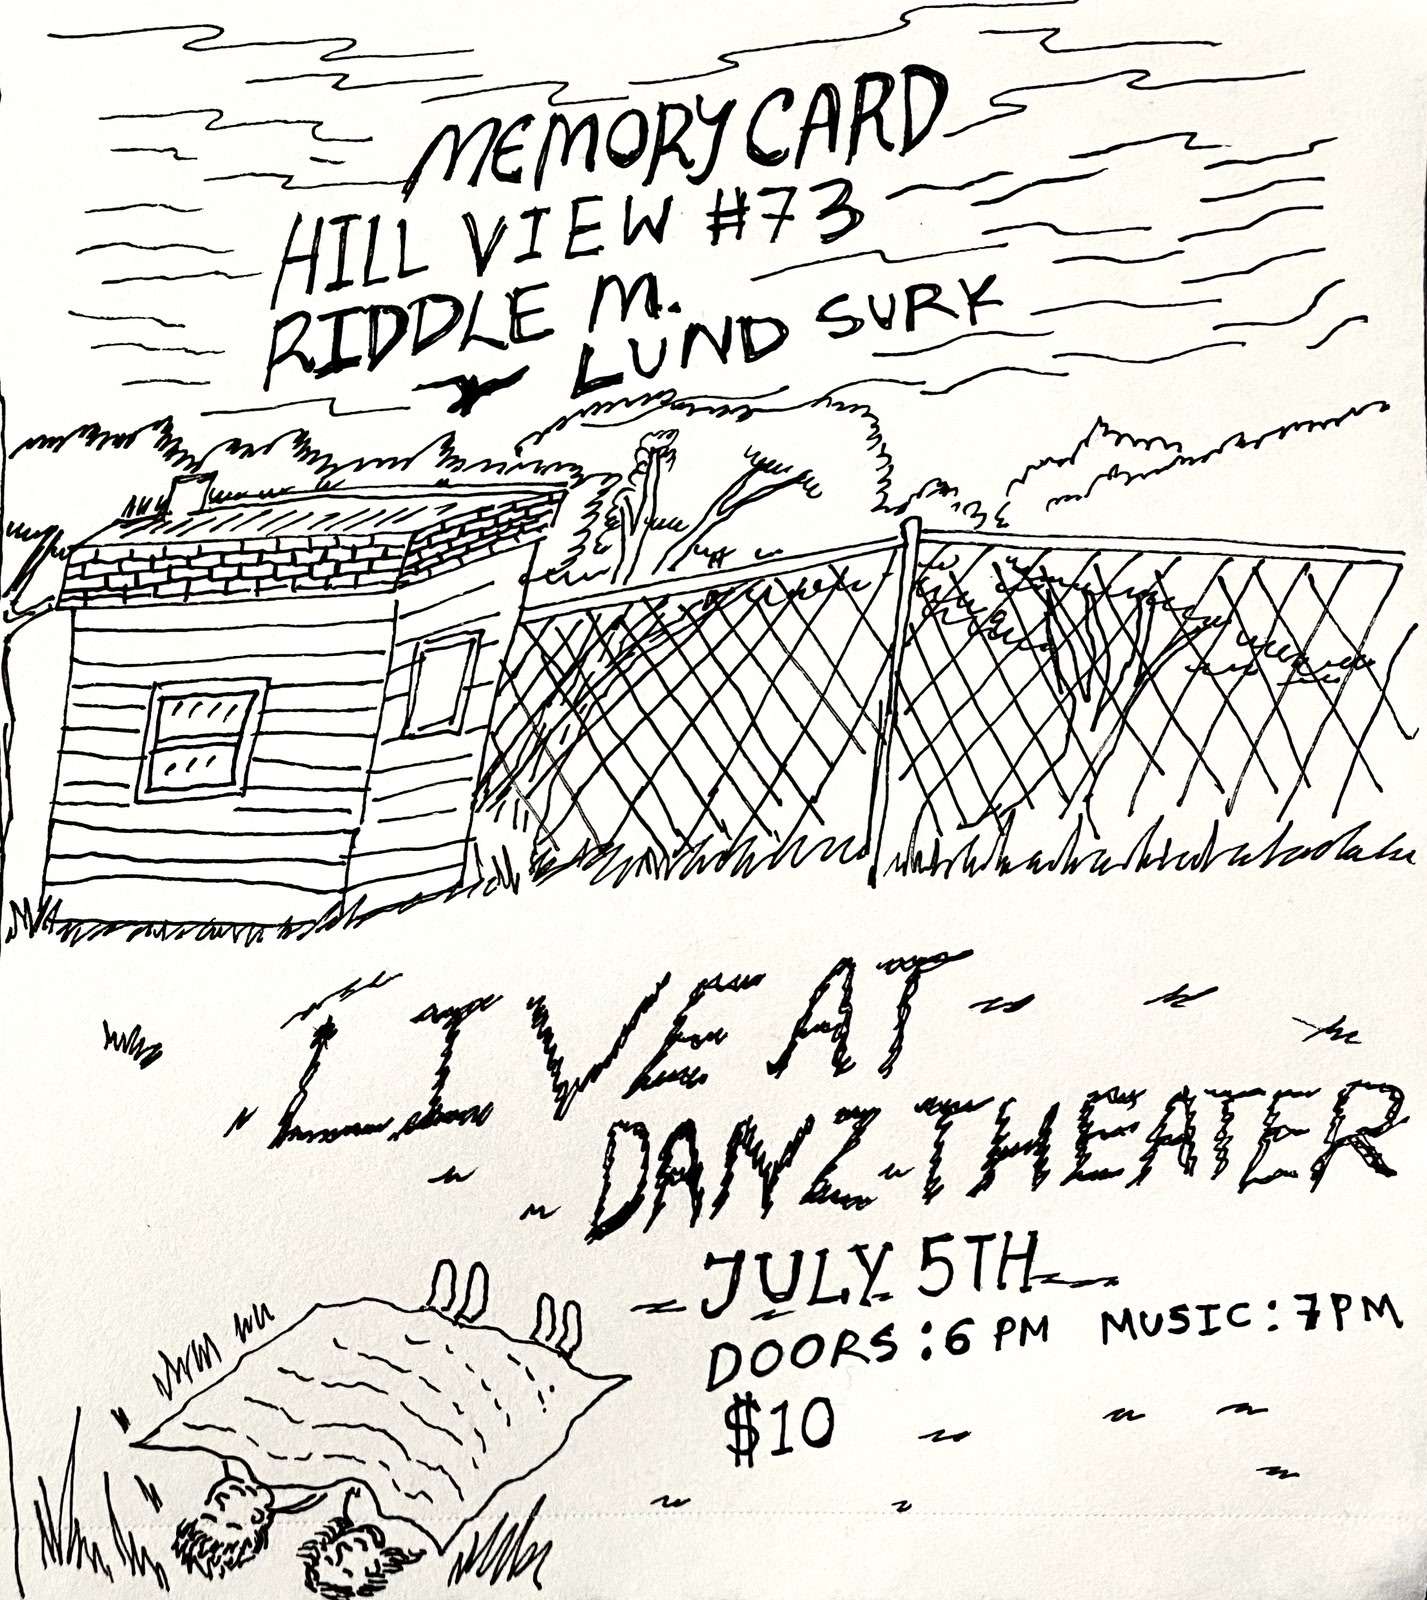 MEMORY CARD
HILL VIEW #73
RIDDLE M.
LUND SURK
LIVE AT
DANZ THEATER
JULY 5TH
DOORS: 6 PM MUSIC: 7PM
$10